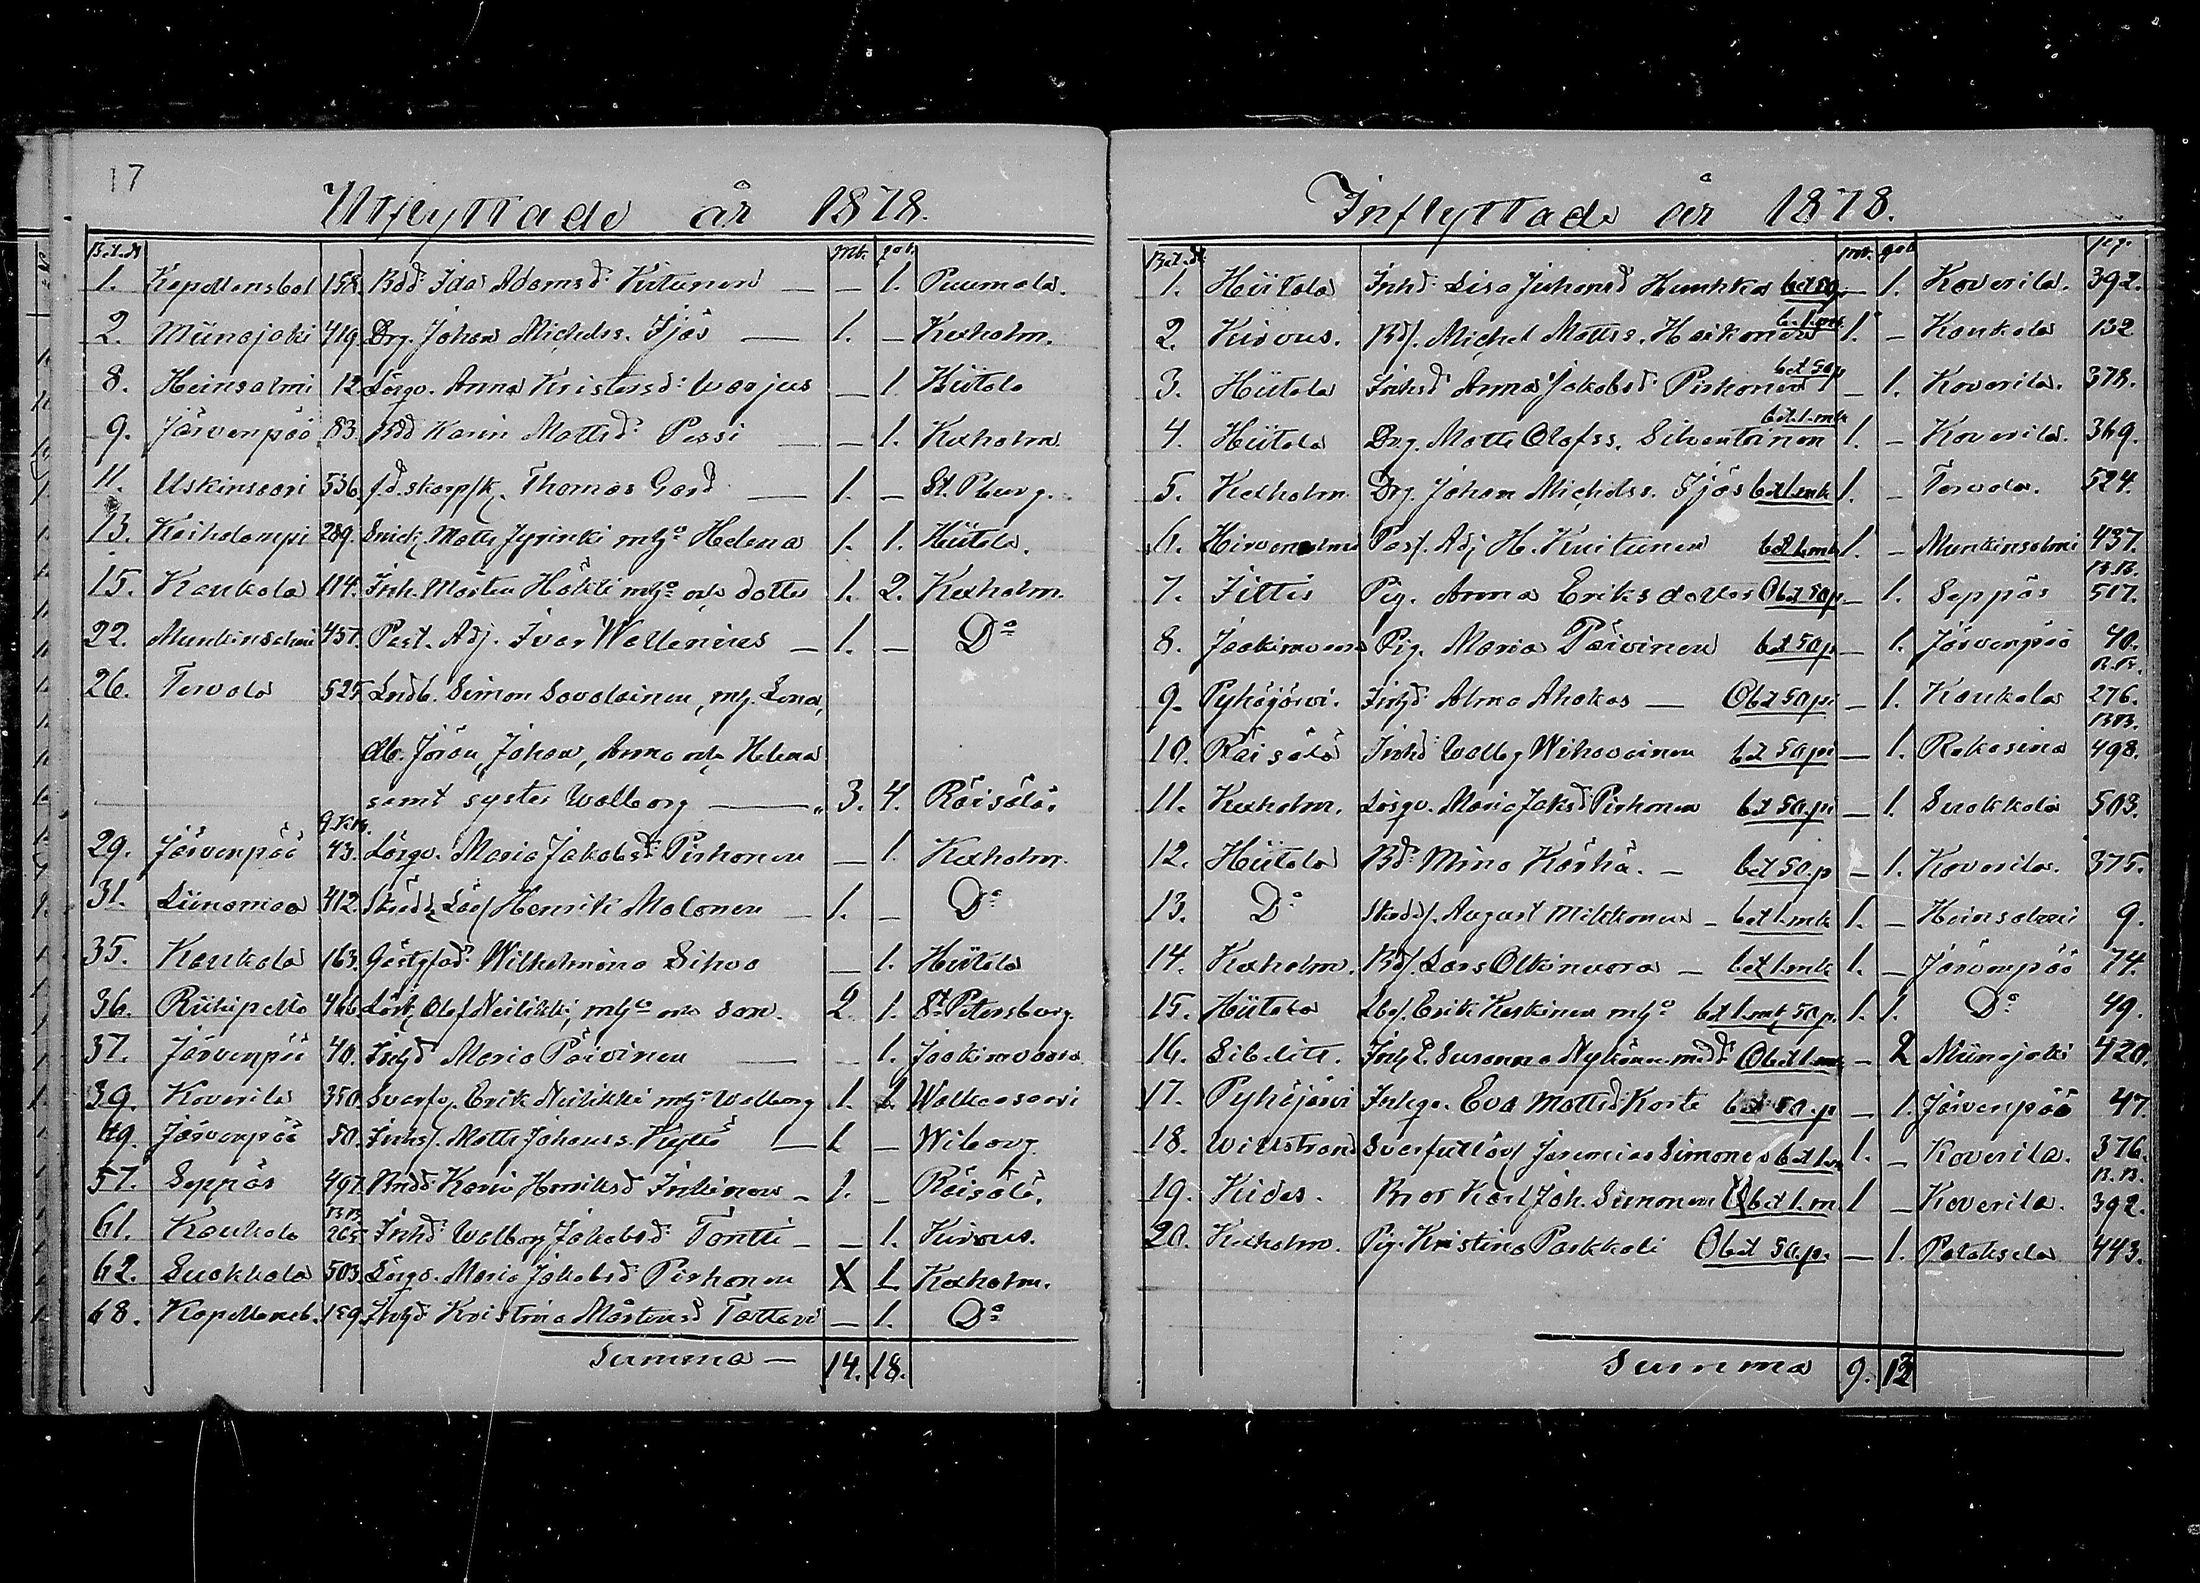 17
Utflyttade år 1878.
Bet. № Mk. qvk.
1. Kapellansbol 158. Bdd: Ida Adamsd: Kiitunen — — 1. Puumala.
2. Miinajoki 419. Drg. Johan Michelss. Jjäs — 1. — Kexholm.
8. Heinsalmi 12. Lösqv. Anna Kristersd: Warjus — 1. Hiitola
9. Järvenpää 83. Bdd Karin Mattsd: Pessi — — 1. Kexholm
11. Uskinsaari 536. f.d. skarpsk. Thomas Gard — 1. — St. Pburg.
13. Kaiholampi 289. Snick. Matts Jyrinki m hᵒ Helena 1. 1. Hiitola.
15. Kaukola 114. Inh. Mårten Häkli m hᵒ och dotter 1. 2. Kexholm.
22. Munkinsalmi 437. Past. Adj. Ivar Wallenius — 1. — Dᵒ
26. Tervola 525. Lndb. Simon Savolainen, m h. Lena,
db. Jöran, Johan, Anna och Helena
samt syster Walborg — 3. 4. Räisälä.
29. Järvenpää 43. Lösqv. Maria Jakobsd: Pirhonen — 1. Kexholm.
31. Liinamaa 412. Skrädd. Henrik Malonen — 1. — Dᵒ
35. Kaukola 163. Wilhelmina Sihvo — 1. Hiitola
36. Riihipelto 466. Olof Neilikki, m hᵒ och son 2. 1. St. Petersburg.
37. Järvenpää 40. Inhd Maria Päivinen — — 1. Jaakimvaara
39. Koverila 350. Svarfv. Erik Neilikki m hᵒ Walborg 1. 1. Walkeasaari
49. Järvenpää 50. Inhs. Matts Johanss. — 1 — Wiborg
57. Seppäs 497. Bndd: Karin Henriksd Inkinen — 1. — Räisälä.
B.B.
61. Kaukola 265. Inhd: Walborg Jakobsd: Tontti — — 1. Kirvus.
62. Suokkala 503. Lösqv. Maria Jakobsd: Pirhonen X 1. Kexholm.
68. Kapellansb. 159. Inhd Kristina Mårtensd Tattari — 1. Dᵒ
Summa — 14. 18.
Inflyttade år 1878.
Bet. № mk. qvk. pag.
1. Hiitola Inhd: Lisa Juhansd Hunkka bet 50p — 1. Koverila. 392.
2. Kirvus. Bds. Michel Mattss. Haikonen bet 1 mk. 1. — Kaukola 132
3. Hiitola Inhsd: Anna Jakobsd: Pirhonen bet 50p — 1. Koverila. 378.
4. Hiitola Drg. Matts Olofss. Silventoinen bet 1 mk 1. — Koverila. 369.
5. Kexholm Drg. Johan Michelss. Jjäs bet 1 mk 1. — Tervola. 524.
6. Hirvensalmi Past. Adj H. Kuitunen bet 1 mk 1. — Munkinsalmi 437.
B.B.
7. Ilttis Pig. Anna Eriksdotter Obet 50p — 1. Seppäs 517.
8. Jaakimvaara Pig. Maria Päivinen bet 50p — 1. Järvenpää 40.
B.B.
9. Pyhäjärvi. Inhd Alma Ahokas — Obet 50pi — 1. Kaukola 276.
B.B.
10. Räisälä Inhd: Walbg Wihavainen bet 50pi — 1. Rakasina 498.
11. Kexholm. Lösqv. Maria Jaksd: Pirhonen bet 50.pi — 1. Suokkola 503.
12. Hiitola Bd: Mina Kärhä. — bet 50.p — 1. Koverila. 375.
13. Dᵒ August Mikkonen — bet 1.mk 1. — Heinsalmi 9.
14. Kexholm. Bds. Lars Olkinuora — bet 1.mk 1. — Järvenpää 74.
15. Hiitola Erik Keskinen m hᵒ bet 1.mk 50p. 1. 1. Dᵒ 49.
16. Sibelitt. Inh. E. Susanna Nykänen med d: Obet 1.mk — 2 Miinajoki 420.
17. Pyhäjärvi Inhqv. Eva Mattsd: Korte bet 50.p — 1. Järvenpää 47.
18. Willstrand Jeremias Simonen bet 1.m 1. — Koverila. 376.
B.B.
19. Kides. Bror Karl Joh. Simonen bet 1.m. 1 — Koverila. 392.
20. Kexholm. Pig. Kristina Paskkali Obet 50.p. — 1. Potoksela 443.
Summa 9. 13